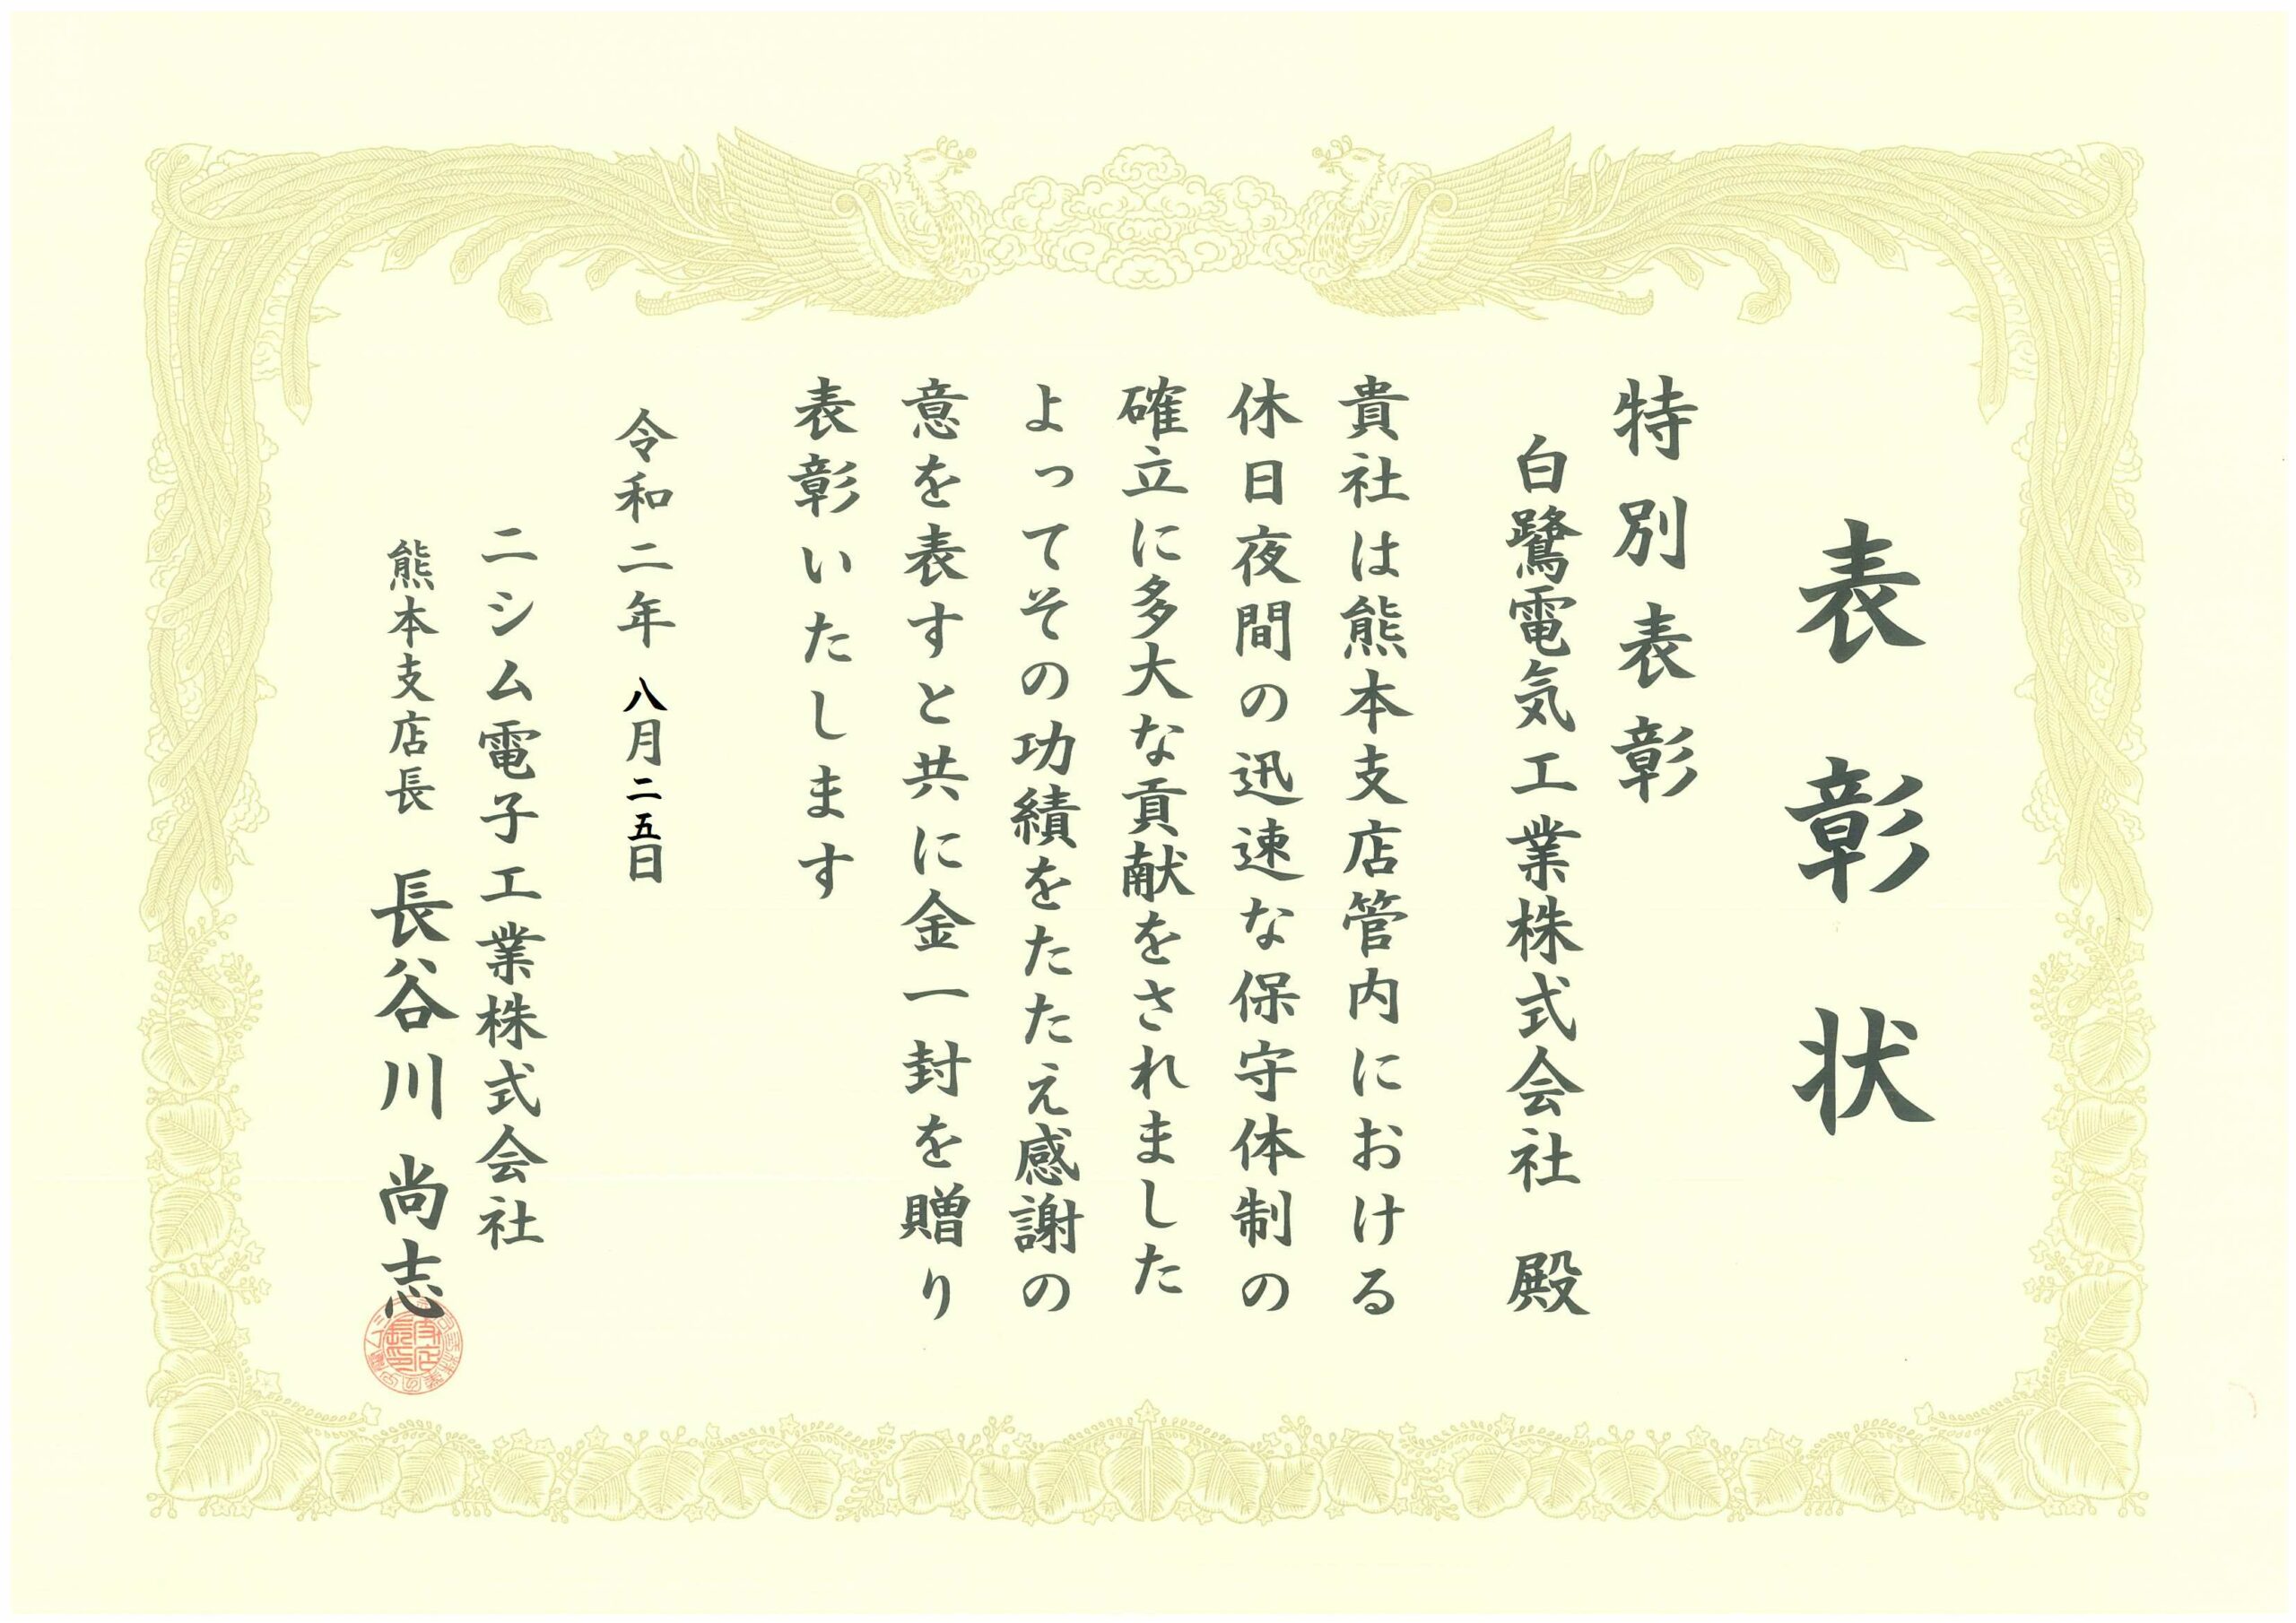 表彰状
特別表彰
白鷺電気工業株式会社 殿
貴社は熊本支店管内における
休日夜間の迅速な保守体制の
確立に多大な貢献をされました
よってその功績をたたえ感謝の
意を表すと共に金一封を贈り
表彰いたします
令和二年 八月二五日
ニシム電子工業株式会社
熊本支店長 長谷川 尚志